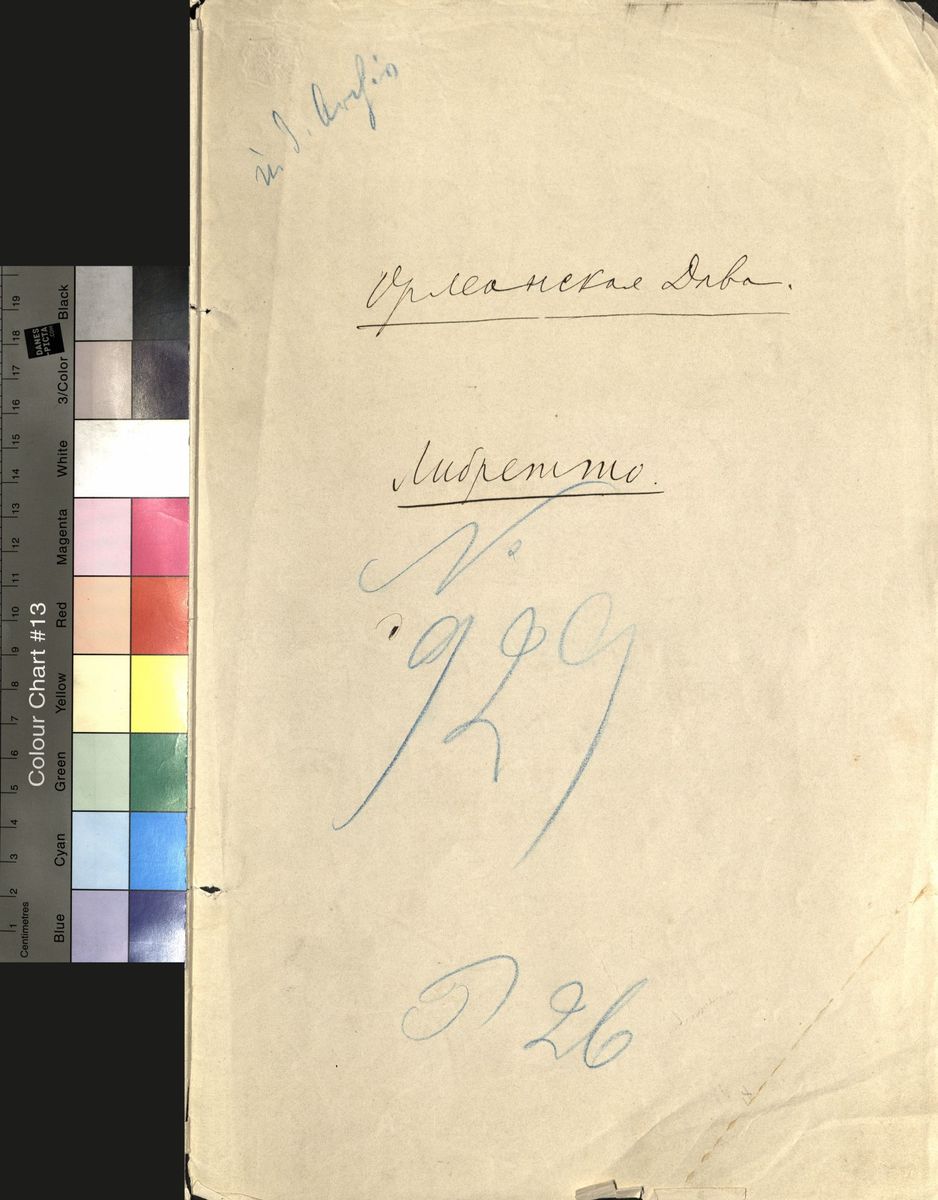 Орлеанская Дѣва.
Либретто.
№
929
26
Colour Chart #13
Centimetres
1 2 3 4 5 6 7 8 9 10 11 12 13 14 15 16 17 18 19
Blue Cyan Green Yellow Red Magenta White 3/Color Black
DANES
-PICTA
.COM